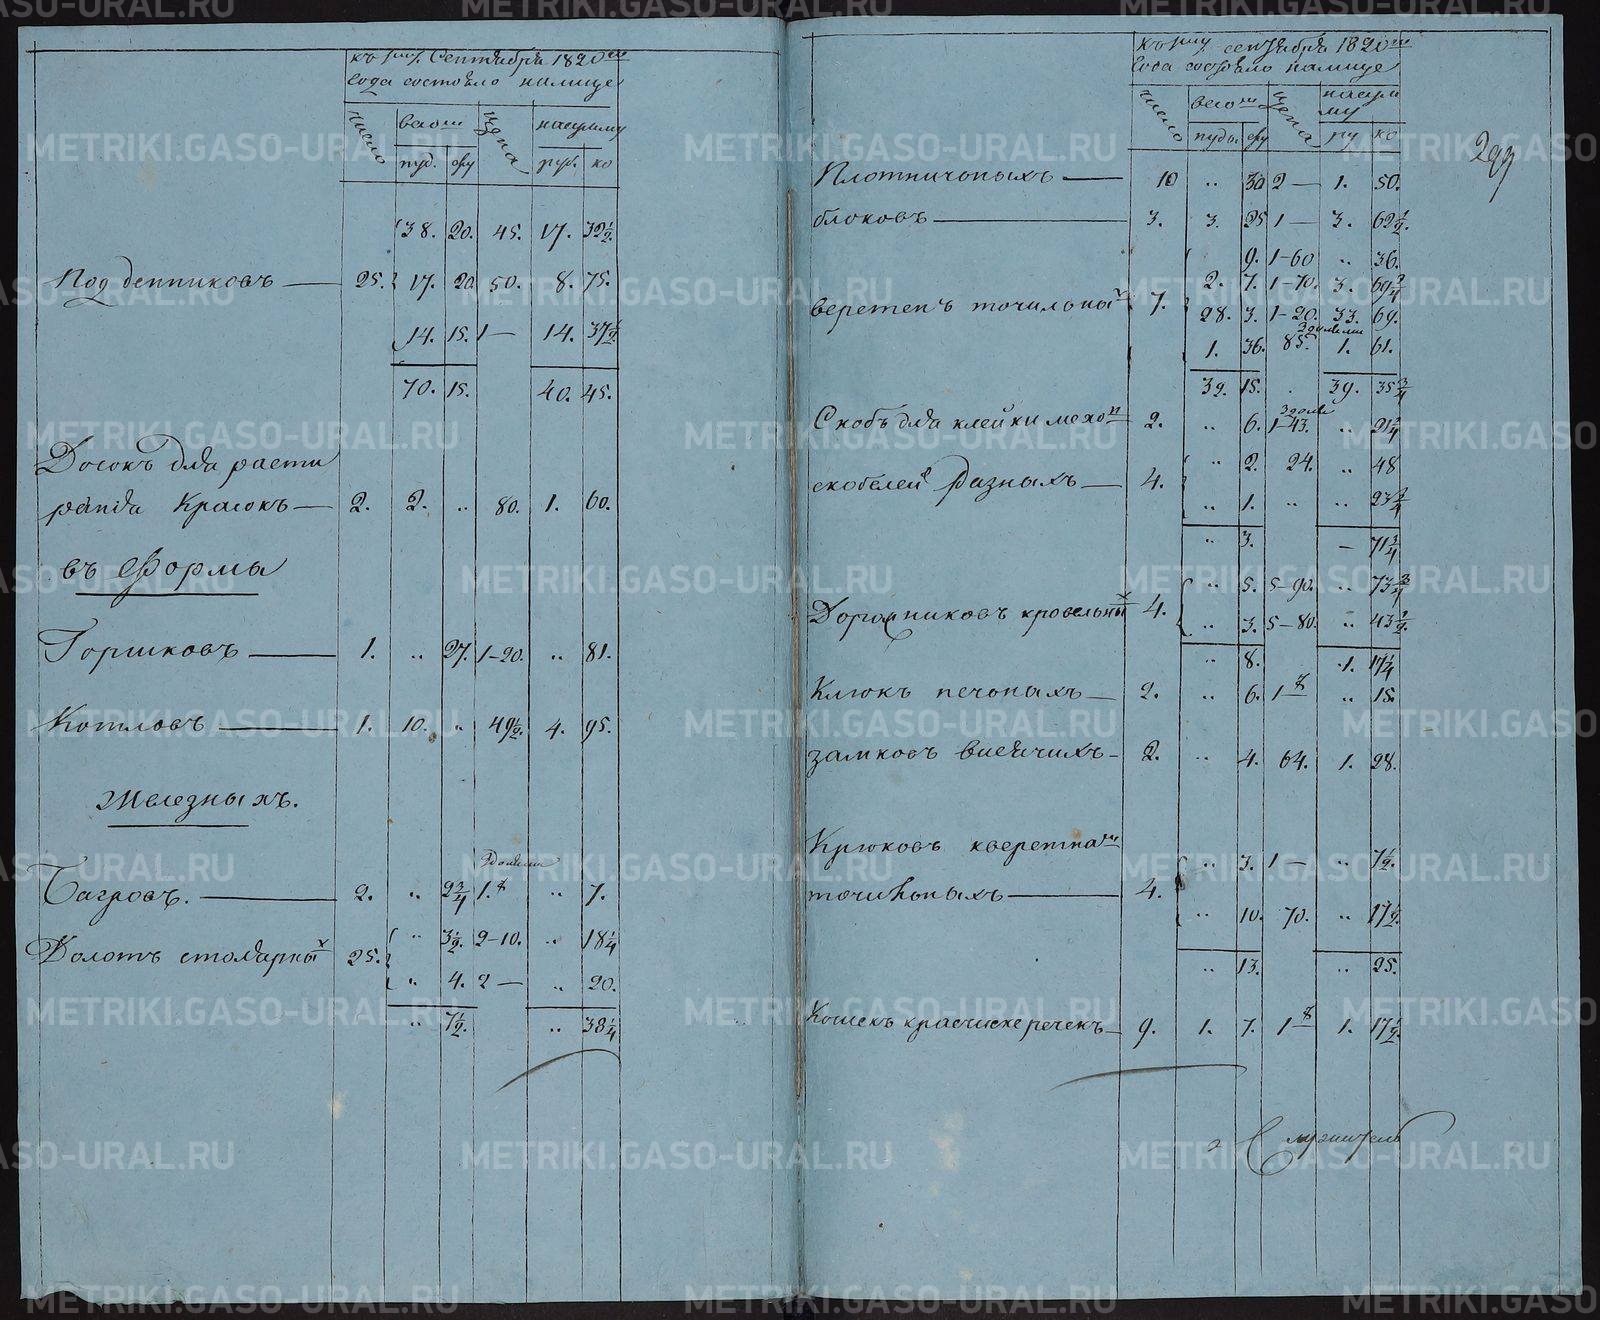 къ 1му Сентября 1820го
года состояло налицо
число весом цена насумму
пуд. фу руб. ко
38. 20. 45. 17. 32½
Подденниковъ 25. 17. 20 50. 8. 75.
14. 15. 1— 14. 37½
70. 15. 40. 45.
Досокъ для расти
рания Красокъ 2. 2. „ 80. 1. 60.
въ Форма
Горшковъ 1. „ 27. 1-20. „ 81.
Котловъ 1. 10. „ 49½ 4. 95.
Железныхъ.
Багровъ. 2. „ 2¾ 1. „ 7.
Долотъ столярных 25. „ 3½ 2-10. „ 18¼
„ 4. 2— „ 20.
„ 7½ „ 38¼
къ 1му сентября 1820го
года состояло налицо
число весом цена насум
му
пудъ. фу ру ко
299
Плотничоныхъ 10 „ 30 2— 1. 50.
блоковъ 3. 3. 25 1— 3. 62½
9. 1-60 „ 36.
2. 7. 1-70. 3. 69¾
веретенъ точильных 7. 28. 3. 1-20. 33. 69.
1. 36. 85. 1. 61.
32. 15. 39. 35¾
Скобъ для клейки мехов 2. „ 6. 1-43. „ 21¼
„ 2. 24. „ 48
скобелей разныхъ 4.
„ 1. „ „ 23¾
„ 3. — 71¾
„ 5. 5-90. „ 73¾
Дорожниковъ кровельных 4.
„ 3. 5-80. „ 43½
„ 8. 1. 17¼
Клюкъ печоныхъ 2. „ 6. 1 „ 15.
замковъ висячихъ 2. „ 4. 64. 1. 28.
Крюковъ кверетнам
„ 3. 1— „ 7½
точильныхъ 4.
„ 10. 70. „ 17½
„ 13. „ 25.
Кошекъ красчисхеречекъ 9. 1. 7. 1 1. 17½
Служитель
METRIKI.GASO-URAL.RU